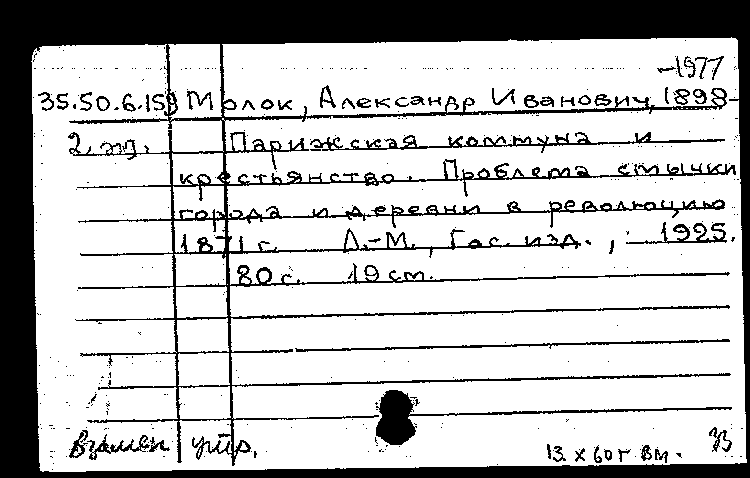 -1977
35.50.6.159 Молок, Александр Иванович, 1898-
2. эк. Парижская коммуна и
крестьянство. Проблема смычки
города и деревни в революцию
1871 г. Л.-М., Гос. изд., 1925.
80 с. 19 см.
Взамен утр.
13. x 60 г Вм.